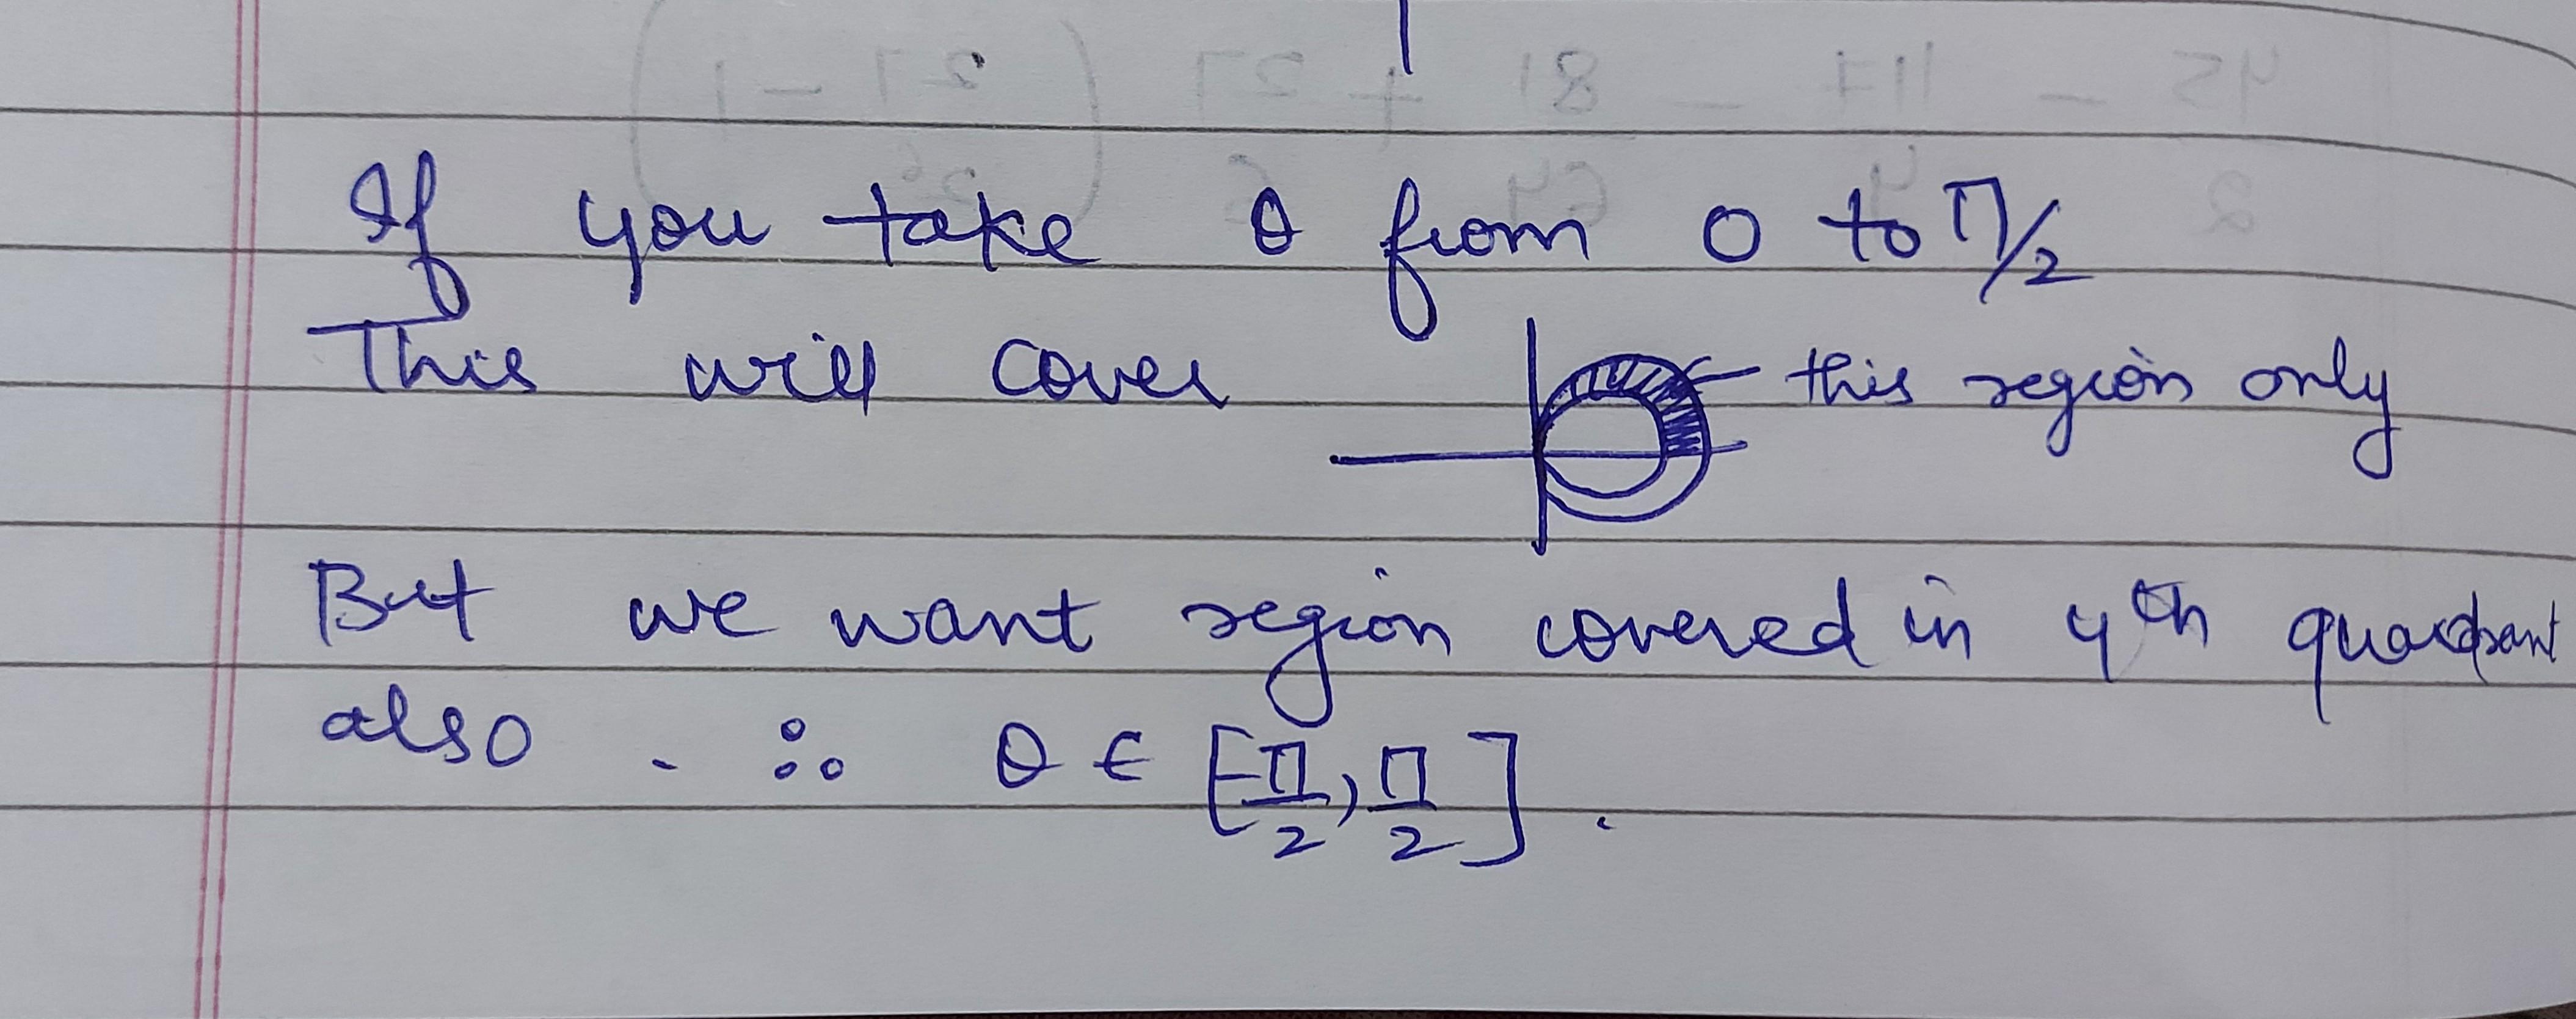 If you take θ from 0 to π/2
This will cover this region only
But we want region covered in 4th quadrant
also . ∴ θ ∈ [-π/2, π/2].